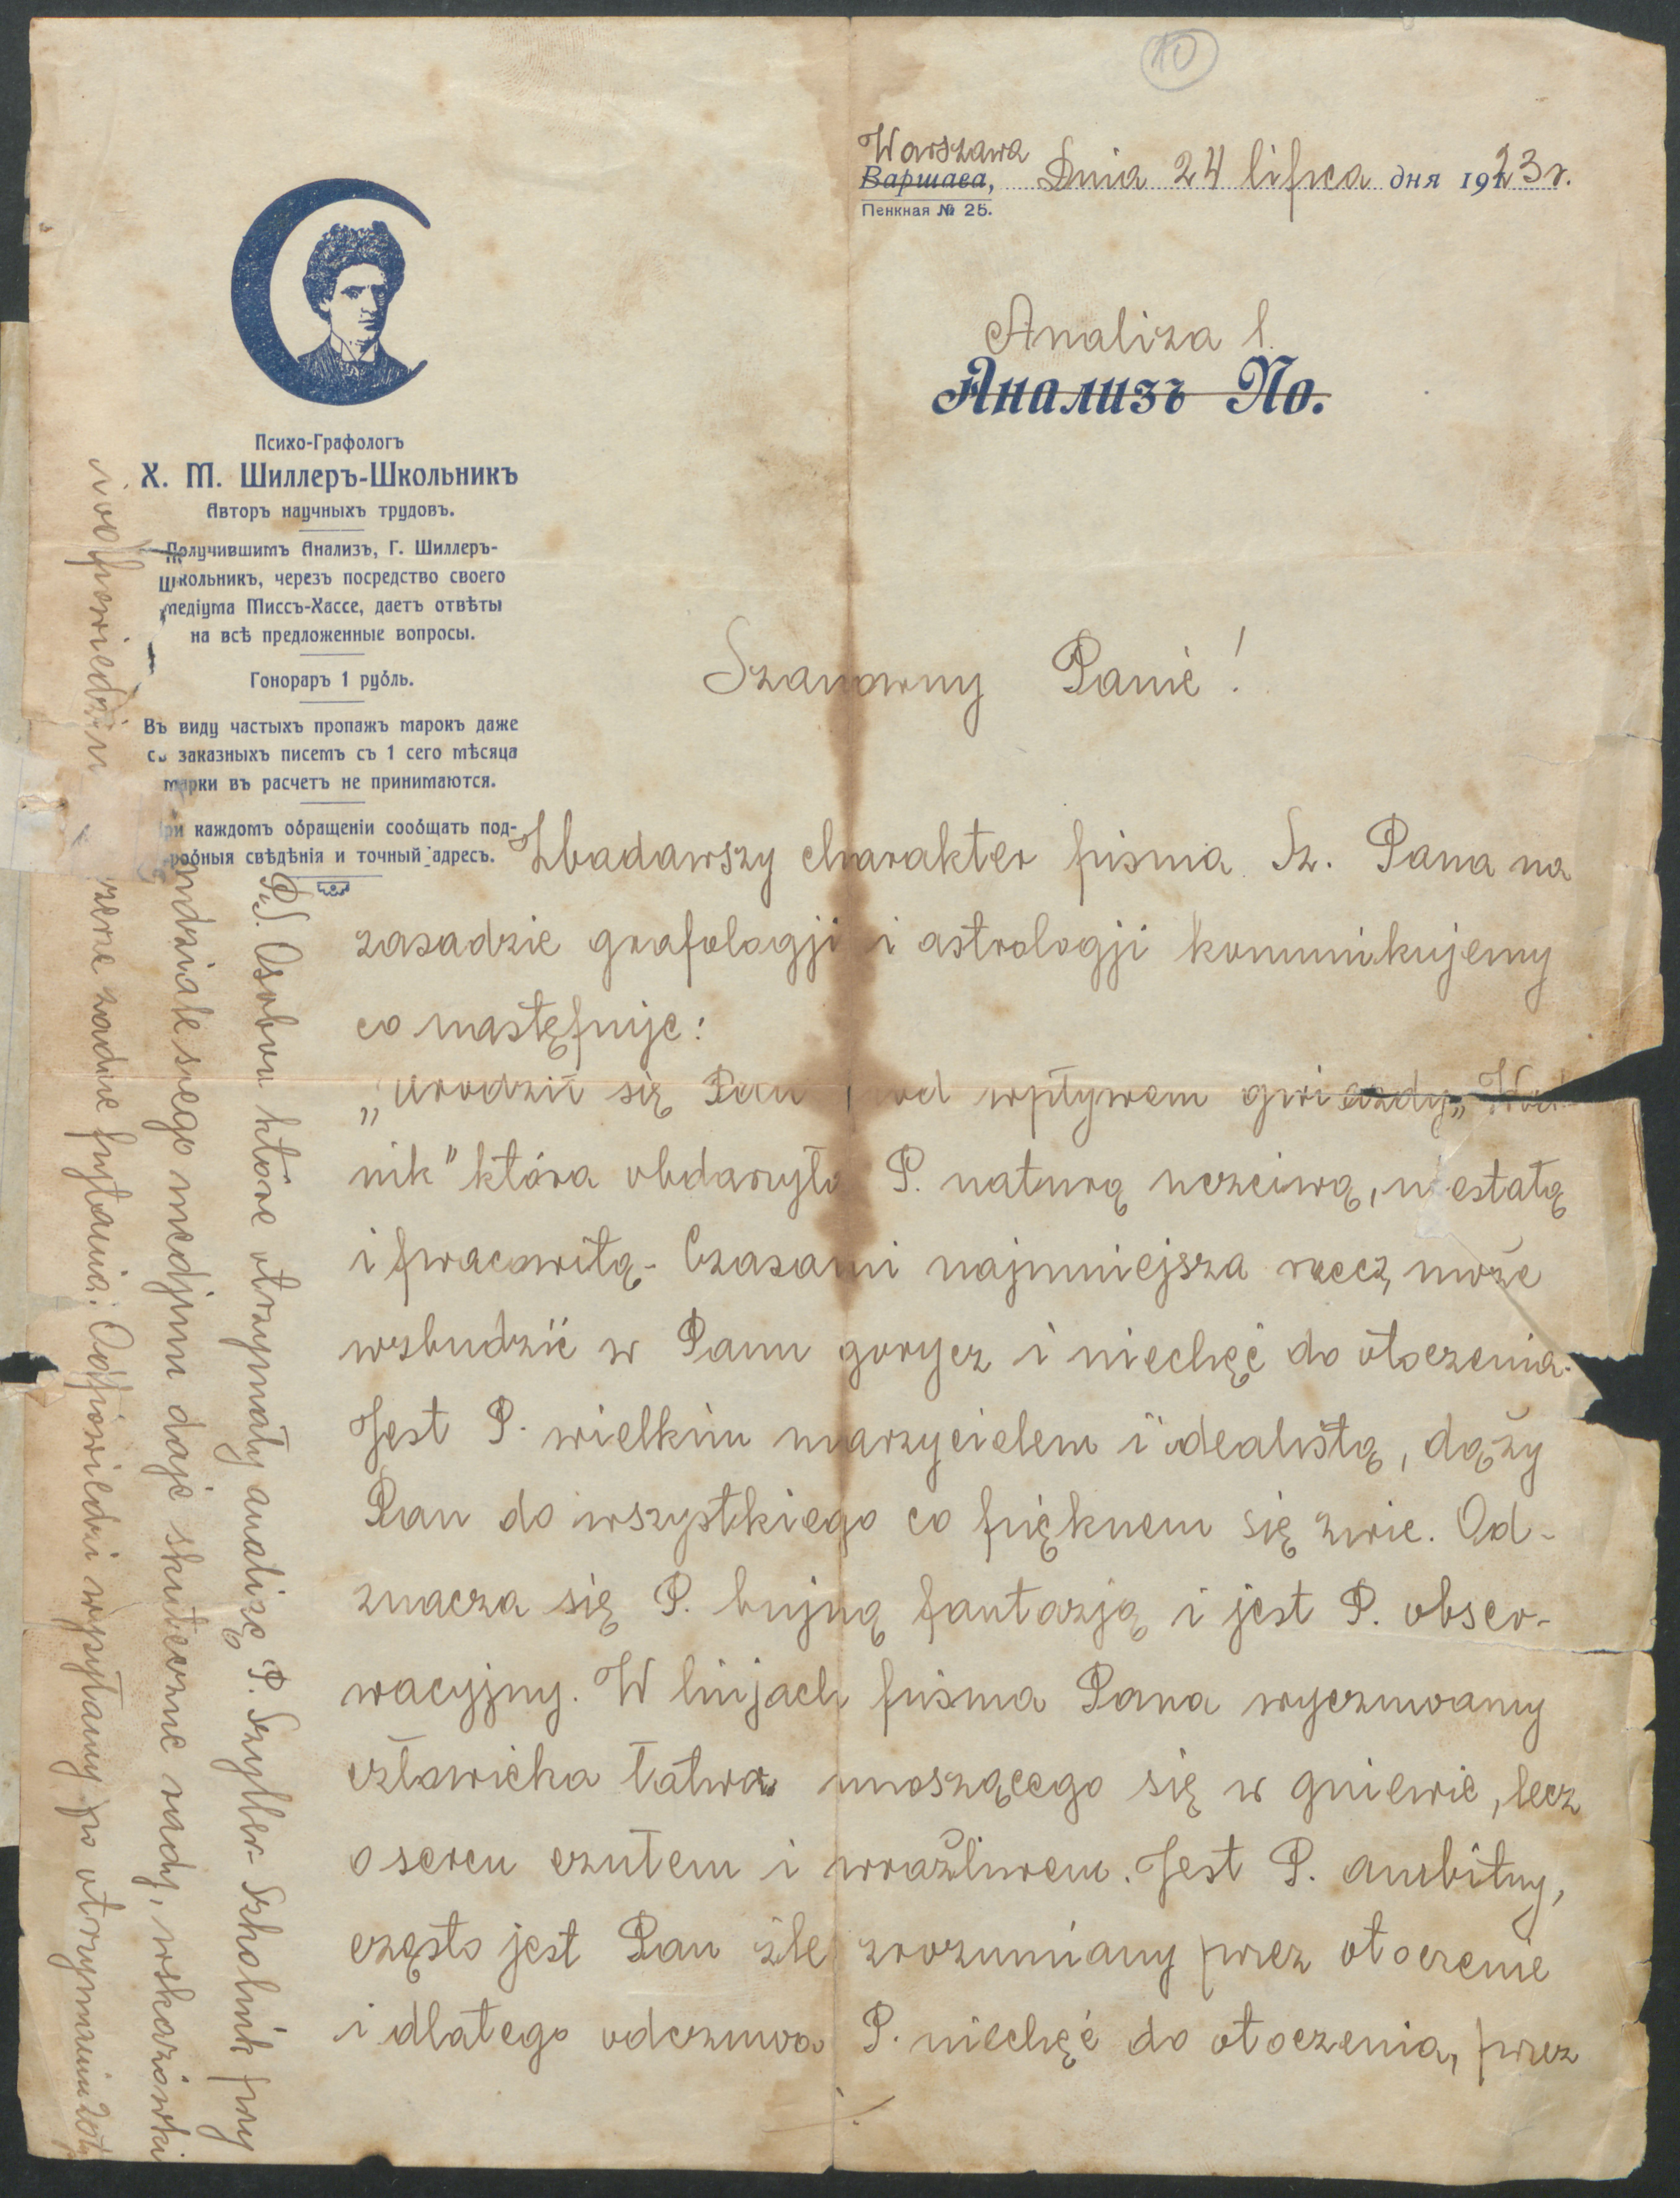 10
Warszawa
Варшава, Dnia 24 lipca дня 1923 r.
Пенкная № 25.
Analiza 1.
Анализъ No.
Психо-Графологъ
Х. М. Шиллеръ-Школьникъ
Авторъ научныхъ трудовъ.
Получившимъ Анализъ, Г. Шиллеръ-
Школьникъ, черезъ посредство своего
медіума Миссъ-Хассе, даетъ отвѣты
на всѣ предложенные вопросы.
Гонораръ 1 рубль.
Въ виду частыхъ пропажъ марокъ даже
съ заказныхъ писемъ съ 1 сего мѣсяца
марки въ расчетъ не принимаются.
При каждомъ обращеніи сообщать под-
робныя свѣдѣнія и точный адресъ.
Szanowny Panie!
Zbadawszy charakter pisma Sz. Pana na
zasadzie grafologji i astrologji komunikujemy
co następuje:
„Urodził się Pan pod wpływem gwiazdy „Wod
nik" która obdarzyła P. naturą uczciwą, niestałą
i pracowitą. Czasami najmniejsza rzecz może
wzbudzić w Panu gorycz i niechęć do otoczenia.
Jest P. wielkim marzycielem i idealistą, dąży
Pan do wszystkiego co pięknem się zwie. Od-
znacza się P. bujną fantazją i jest P. obser-
wacyjny. W linjach pisma Pana wyczuwamy
człowieka łatwo unoszącego się w gniewie, lecz
o sercu czułem i wrażliwem. Jest P. ambitny,
często jest Pan źle zrozumiany przez otoczenie
i dlatego odczuwa P. niechęć do otoczenia, przez
P.S. Osobom które otrzymały analizę P. Szyller-Szkolnik przy
udziale swego medjum daje skuteczne rady, wskazówki
i odpowiedzi na zadane pytania. Odpowiedzi wysyłamy po otrzymaniu